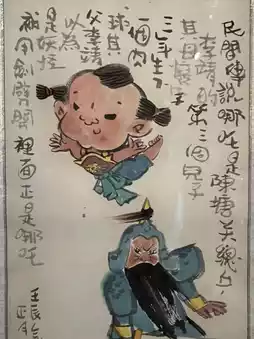 民間傳說哪吒是陳塘關總兵
李靖的第三個兒子
其母懷孕
三年生下
一個肉
球其
父李靖
以為
是妖怪
被用劍劈開 裡面正是哪吒
壬辰